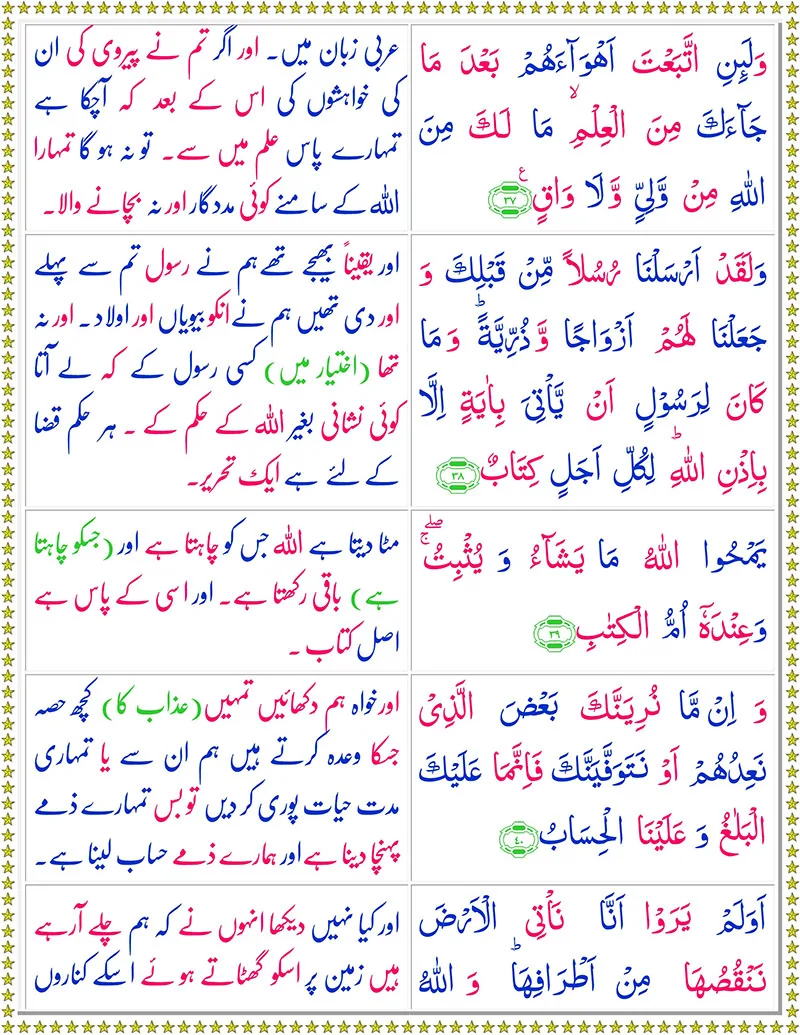 وَلَئِنِ اتَّبَعْتَ اَهْوَآءَهُمْ بَعْدَ مَا
جَآءَكَ مِنَ الْعِلْمِ ۙ مَا لَكَ مِنَ
اللّٰهِ مِنْ وَّلِيٍّ وَّلَا وَاقٍ ع ۳۷
عربی زبان میں۔ اور اگر تم نے پیروی کی ان
کی خواہشوں کی اس کے بعد کہ آچکا ہے
تمہارے پاس علم میں سے۔ تو نہ ہو گا تمہارا
اللہ کے سامنے کوئی مددگار اور نہ بچانے والا۔
وَلَقَدْ اَرْسَلْنَا رُسُلاً مِّنْ قَبْلِكَ وَ
جَعَلْنَا لَهُمْ اَزْوَاجًا وَّ ذُرِّيَّةً ؕ وَ مَا
كَانَ لِرَسُوْلٍ اَنْ يَّاْتِىَ بِاٰيَةٍ اِلَّا
بِاِذْنِ اللّٰهِ ؕ لِكُلِّ اَجَلٍ كِتَابٌ ۳۸
اور یقیناً بھیجے تھے ہم نے رسول تم سے پہلے
اور دی تھیں ہم نے انکو بیویاں اور اولاد۔ اور نہ
تھا (اختیار میں) کسی رسول کے کہ لے آتا
کوئی نشانی بغیر اللہ کے حکم کے۔ ہر حکم قضا
کے لئے ہے ایک تحریر۔
يَمْحُوا اللّٰهُ مَا يَشَآءُ وَ يُثْبِتُ ۖۚ
وَعِنْدَهٗۤ اُمُّ الْكِتٰبِ ۳۹
مٹا دیتا ہے اللہ جس کو چاہتا ہے اور (جسکو چاہتا
ہے) باقی رکھتا ہے۔ اور اسی کے پاس ہے
اصل کتاب۔
وَ اِنْ مَّا نُرِيَنَّكَ بَعْضَ الَّذِىْ
نَعِدُهُمْ اَوْ نَتَوَفَّيَنَّكَ فَاِنَّمَا عَلَيْكَ
الْبَلٰغُ وَ عَلَيْنَا الْحِسَابُ ۴۰
اور خواہ ہم دکھائیں تمہیں (عذاب کا) کچھ حصہ
جسکا وعدہ کرتے ہیں ہم ان سے یا تمہاری
مدت حیات پوری کر دیں تو بس تمہارے ذمے
پہنچا دینا ہے اور ہمارے ذمے حساب لینا ہے۔
اَوَلَمْ يَرَوْا اَنَّا نَاْتِى الْاَرْضَ
نَنْقُصُهَا مِنْ اَطْرَافِهَا ؕ وَ اللّٰهُ
اور کیا نہیں دیکھا انہوں نے کہ ہم چلے آرہے
ہیں زمین پر اسکو گھٹاتے ہوئے اسکے کناروں